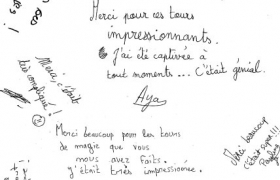 Merci pour ces tours
impressionnants.
J'ai été captivée à
tout moments... C'était génial.
Aya
Merci, c'était
très compliqué!
Merci beaucoup pour les tours
de magie que vous
nous avez faits.
j'était très impressionnée.
Merci beaucoup
c'était super!!!